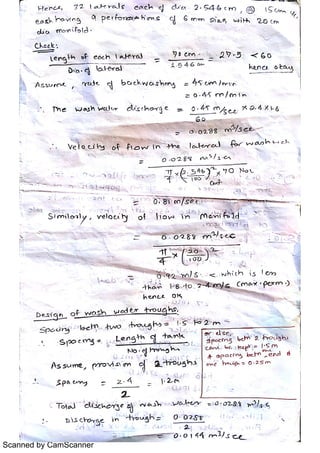 Hence, 72 laterals each of dia 2.546 cm, @ 15 cm c/c
each having 9 perforations of 6 mm size, with 20 cm
dia manifold.
Check:
Length of each lateral / Dia. of lateral = 70 cm / 2.546 cm = 27.5 < 60
hence okay
Assume, rate of backwashing = 45 cm/min
= 0.45 m/min
∴ The wash water discharge = 0.45 m/sec × 2.4 × 1.6 / 60
= 0.0288 m³/sec
∴ Velocity of flow in the lateral for wash
= 0.0288 m³/s / π/4 × (2.546/100)² × 70 Nos
= 0.81 m/sec
Similarly, velocity of flow in manifold
= 0.0288 m³/sec / π/4 × (20/100)²
= 0.92 m/s < which is less
than 1.8 to 2.4 m/s (max. perm.)
hence OK
Design of wash water troughs.
Spacing betn two troughs = 1.5 to 2 m
∴ Spacing = Length of tank / No. of troughs
or else,
spacing betn 2 troughs
can be kept = 1.5 m
& spacing betn end &
one trough = 0.25 m
Assume, provision of 2 troughs
∴ Spacing = 2.4 / 2 = 1.2 m
∴ Total discharge of wash water = 0.0288 m³/s
∴ Discharge in trough = 0.0288 / 2
= 0.0144 m³/sec
Scanned by CamScanner